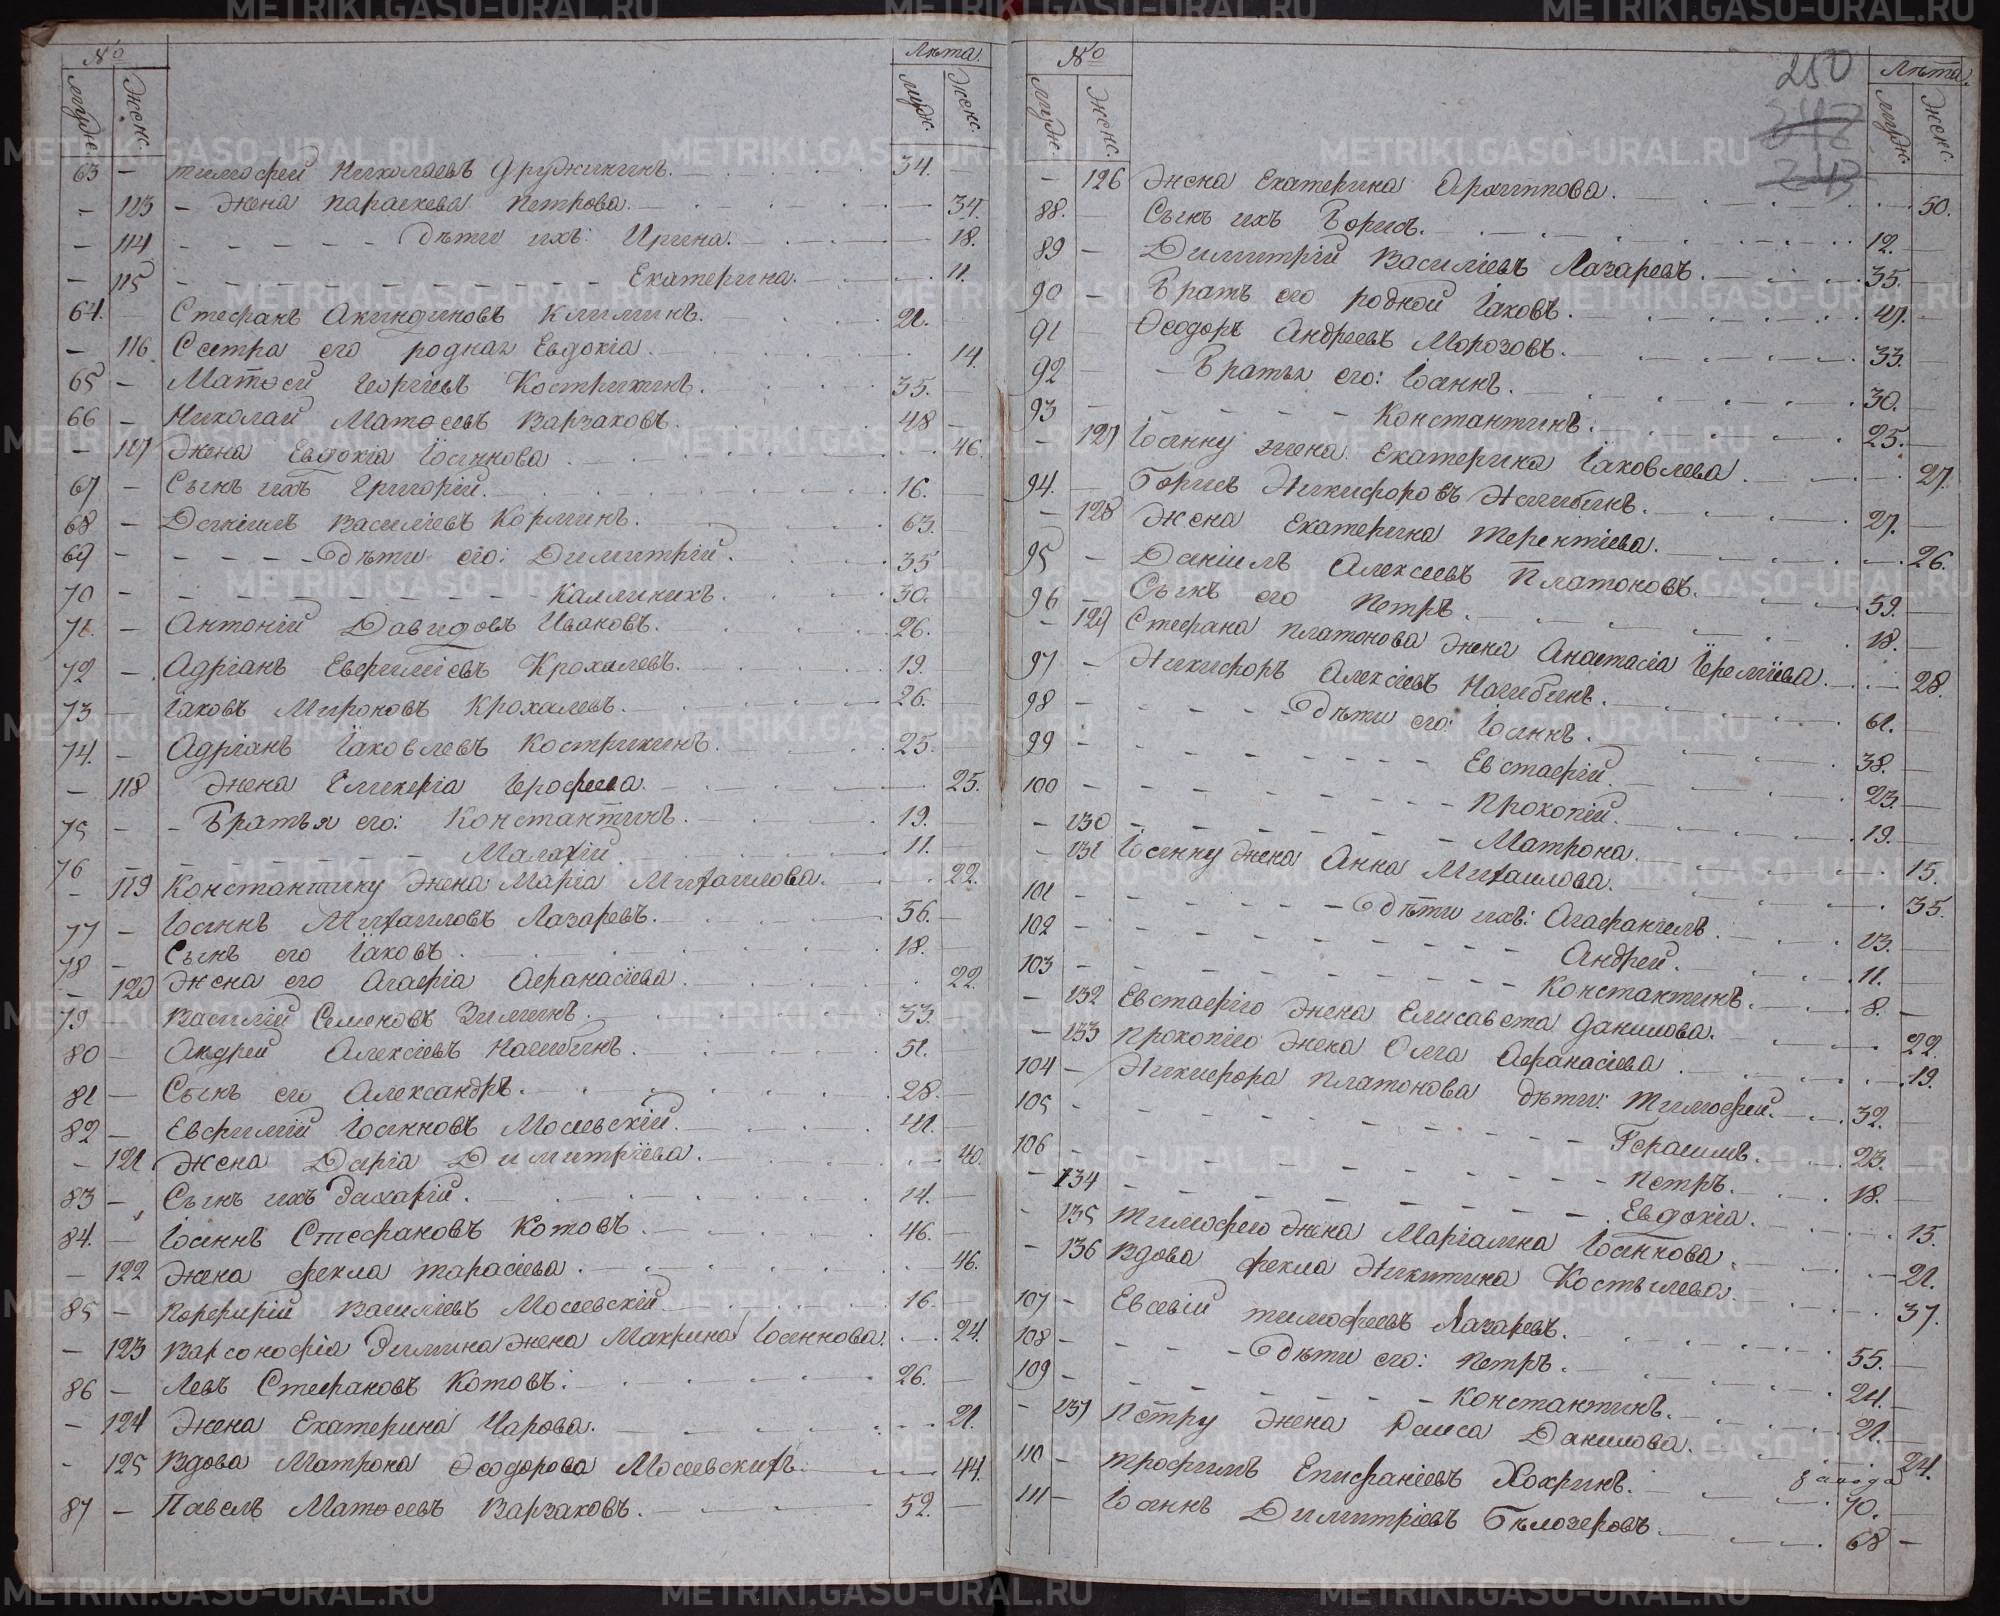 № Лѣта
муж. женс. муж. женс.
63 — Тимофей Николаевъ Дружининъ. 34. —
— 113 — жена Параскева Петрова. — 34.
— 114 — дѣти ихъ: Ирина. — 18.
— 115 — Екатерина. — 11.
64. — Стефанъ Акиндиновъ Климинъ. 21. —
— 116 Сестра его родная Евдокія. 14.
65 — Матѳей Георгіевъ Кострикинъ. 35. —
66 — Николай Матѳеевъ Варзаковъ. 48 —
— 117 Жена Евдокія Іоаннова. — 46.
67 — Сынъ ихъ Григорій. 16. —
68 — Даніилъ Василіевъ Корминъ. 63. —
69 — дѣти его: Димитрій. 35 —
70 — Каллиникъ. 30. —
71. — Антоній Давидовъ Ивановъ. 26. —
72 — Адріанъ Евфиміевъ Крохалевъ. 19. —
73 — Іаковъ Мироновъ Крохалевъ. 26. —
74. — Адріанъ Іаковлевъ Кострикинъ. 25. —
— 118 Жена Гликерія Ерофеева. — 25.
75 — Братья его: Константинъ. 19. —
76 — Малахій. 11. —
— 119 Константину жена Марія Михаилова. — 22.
77 — Іоаннъ Михаиловъ Лазаревъ. 56. —
78 — Сынъ его Іаковъ. 18. —
— 120 Жена его Агафія Афанасіева. 22.
79 — Василій Семеновъ Зиминъ. 33. —
80 — Андрей Алексіевъ Нагибинъ. 51. —
81 — Сынъ его Александръ. 28. —
82 — Евфимій Іоанновъ Мосиевскій. 41. —
— 121 Жена Дарія Димитріева. — 40.
83 — Сынъ ихъ Захарій. 14. —
84. — Іоаннъ Стефановъ Котовъ. 46. —
— 122 Жена Фекла Тарасіева. 46.
85 — Порфирій Василіевъ Мосиевскій. 16. —
— 123 Варсонофія Зимина жена Макрина Іоаннова. — 24.
86 — Левъ Стефановъ Котовъ. 26. —
— 124 Жена Екатерина Уарова. — 21.
— 125 Вдова Матрона Ѳеодорова Мосиевскихъ. — 44.
87 — Павелъ Матѳеевъ Варзаковъ. 52. —
№ 250 Лѣта
муж. женс. 247 муж. женс.
243
— 126 Жена Екатерина Архиппова. 50.
88. — Сынъ ихъ Борисъ. 12. —
89 — Димитрій Василіевъ Лазаревъ. 35. —
90 — Братъ его родной Іаковъ. 41. —
91 — Ѳеодоръ Андреевъ Морозовъ. 33. —
92 — Братья его: Іоаннъ. 30. —
93 — Константинъ. 25. —
— 127 Іоанну жена Екатерина Іаковлева. — 27.
94. — Борисъ Никифоровъ Нагибинъ. 27. —
— 128 Жена Екатерина Терентіева. — 26.
95 — Даніилъ Алексеевъ Платоновъ. 59. —
96 — Сынъ его Петръ. 18. —
— 129 Стефана Платонова жена Анастасія Іереміева. — 28.
97 — Никифоръ Алексіевъ Нагибинъ. 61. —
98 — дѣти его: Іоаннъ. 38. —
99 — Евстафій. 23. —
100 — Прокопій. 19. —
— 130 — Матрона. 15.
— 131 Іоанну жена Анна Михаилова. 35.
101 — дѣти ихъ: Агафангелъ. 13. —
102 — Андрей. 11. —
103 — Константинъ. 8. —
— 132 Евстафію жена Елисавета Данилова. 22.
— 133 Прокопію жена Олга Афанасіева 19.
104 — Никифора Платонова дѣти: Тимофей. 32. —
105 — Герасимъ. 23. —
106 — Петръ. 18. —
— 134 — Евдокія. 15.
— 135 Тимофею жена Маріамна Іоаннова. 21.
— 136 Вдова Фекла Никитина Костылева. 37.
107 — Евсевій Тимофеевъ Лазаревъ. 55. —
108 — дѣти его: Петръ. 24. —
109 — Константинъ. 21. —
— 137 Петру жена Раиса Данилова. 24.
110 — Трофимъ Епифаніевъ Хохринъ. 70. —
111 — Іоаннъ Димитріевъ Бѣлозеровъ. 68 —